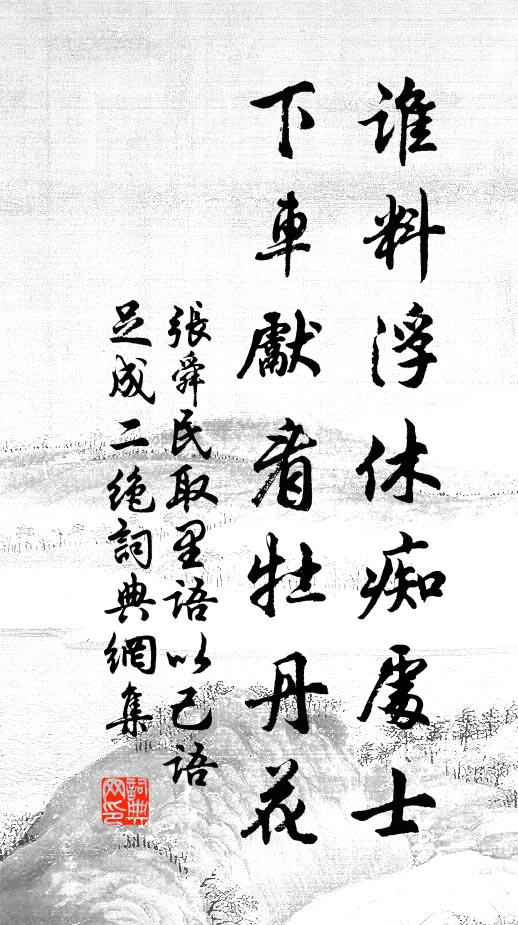 誰料浮休痴處士
下車獻看牡丹花
張舜民取里語以己語
足成二絶詞典網集
詞典
网印